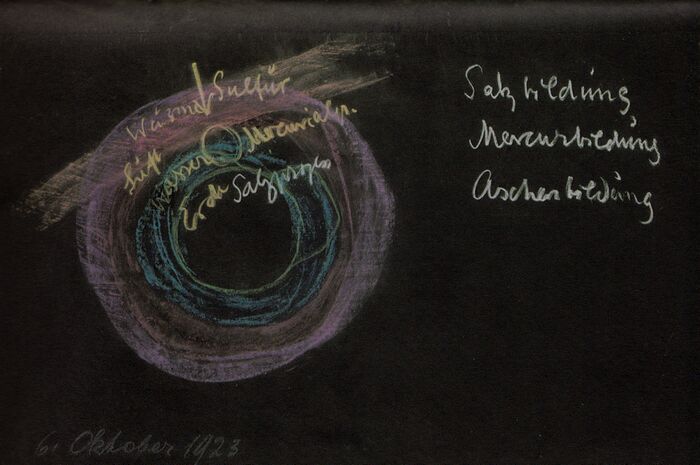 Wärme Sulfur
Luft
Wasser Mercurialpr.
Erde Salzprozess
Salzbildung
Mercurbildung
Aschenbildung
6. Oktober 1923